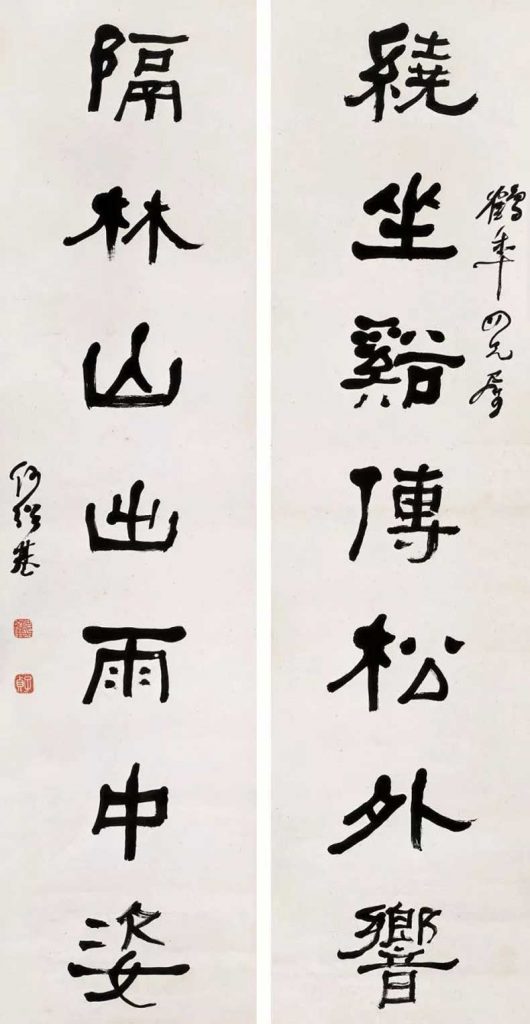 鶴年四兄屬
繞坐谿傳松外響
隔林山出雨中姿
何紹基